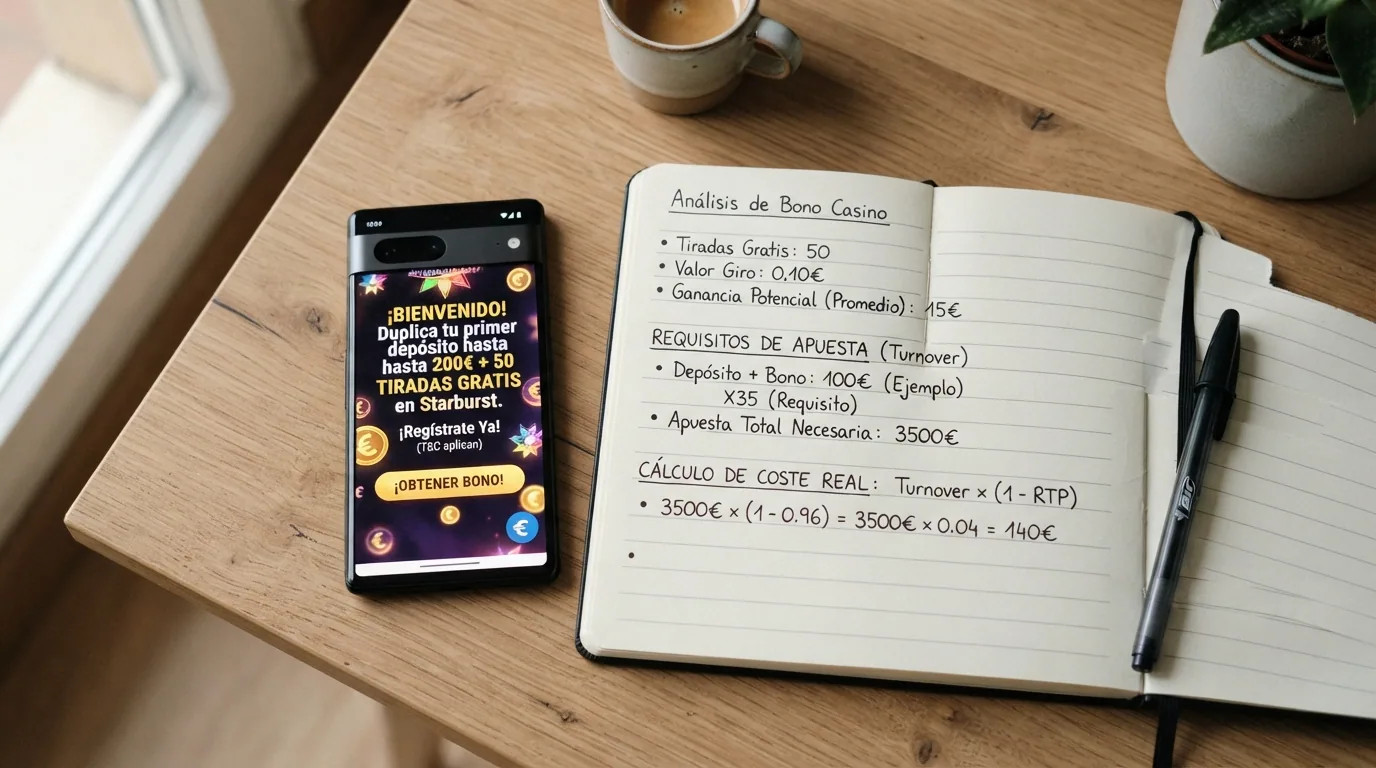 ¡BIENVENIDO!
Duplica tu primer
depósito hasta
hasta 200€ + 50
TIRADAS GRATIS
en Starburst.
¡Regístrate Ya!
(T&C aplican)
¡OBTENER BONO!
Análisis de Bono Casino
• Tiradas Gratis: 50
• Valor Giro: 0.10€
• Ganancia Potencial (Promedio): 15€
REQUISITOS DE APUESTA (Turnover)
• Depósito + Bono: 100€ (Ejemplo)
X35 (Requisito)
• Apuesta Total Necesaria: 3500€
CÁLCULO DE COSTE REAL: Turnover × (1 - RTP)
• 3500€ × (1 - 0.96) = 3500€ × 0.04 = 140€
•
BIC